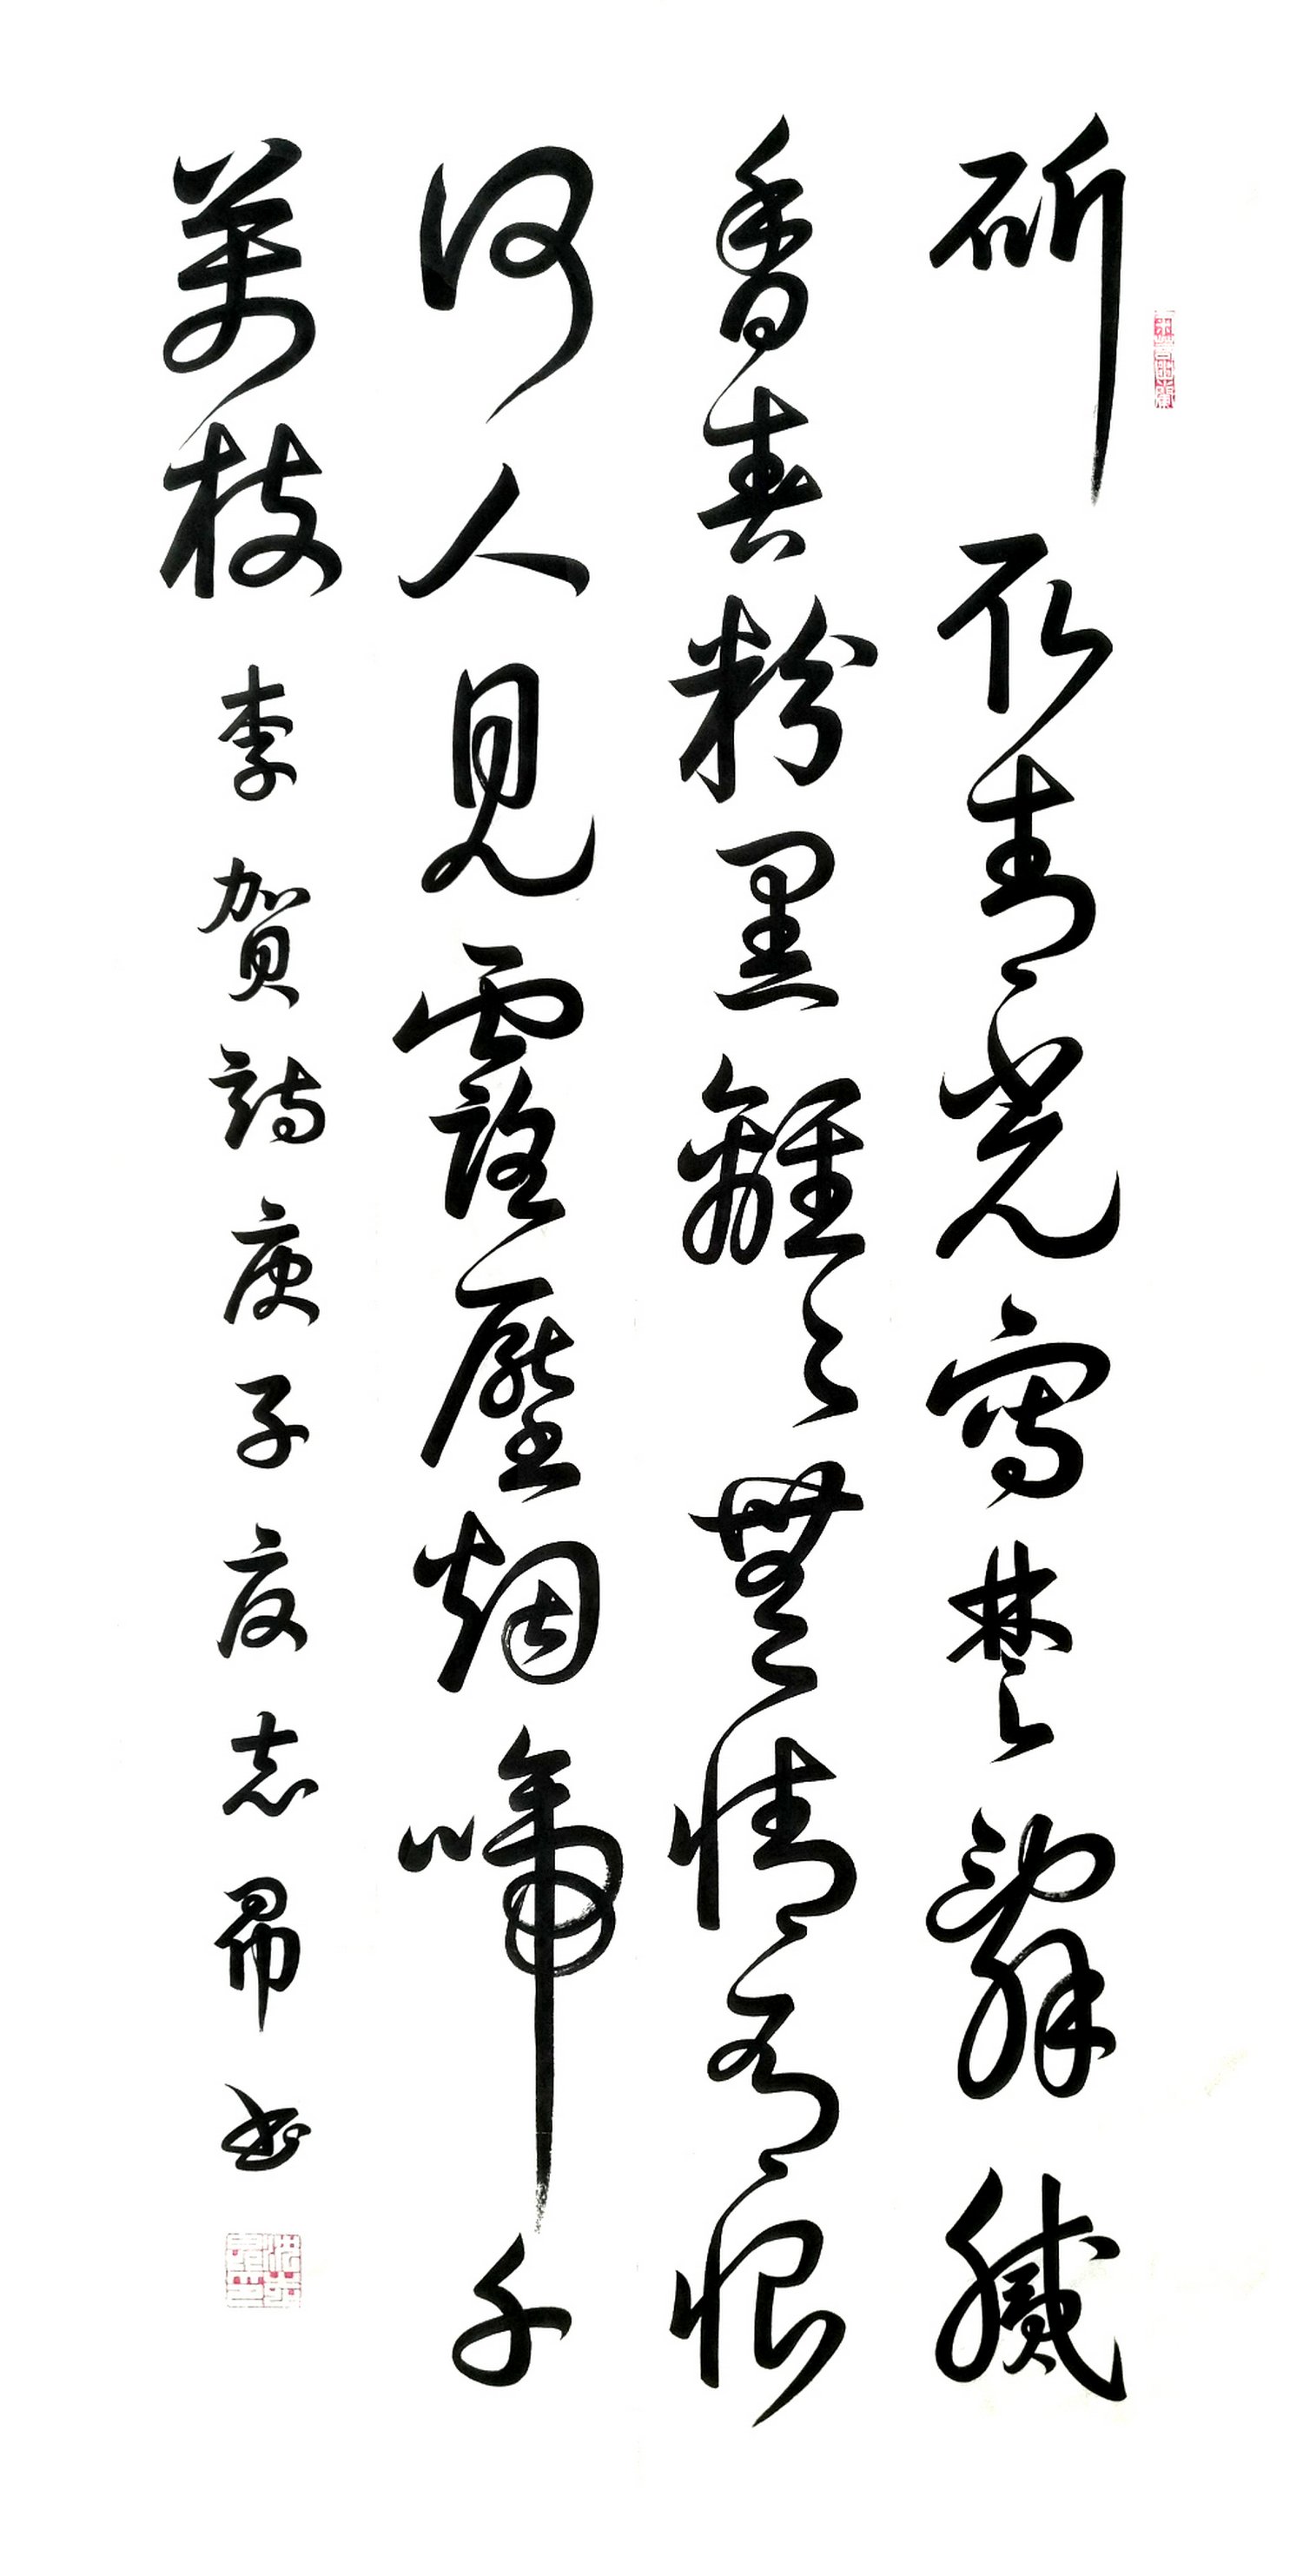 斫取青光寫楚辭膩
香春粉黑離離無情有恨
何人見露壓烟啼千
萬枝 李賀詩庚子夏志昴書